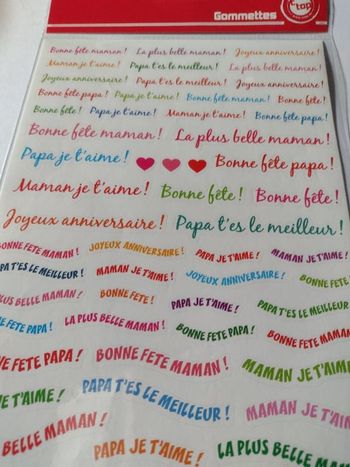 Gommettes
top
Bonne fête maman! La plus belle maman! Joyeux anniversaire!
Maman je t'aime! Papa t'es le meilleur! La plus belle maman!
Joyeux anniversaire! Papa t'es le meilleur! Joyeux anniversaire!
Bonne fête papa! Papa je t'aime! Bonne fête maman! Bonne fête!
Bonne fête! Papa je t'aime! Maman je t'aime! Bonne fête papa!
Bonne fête maman! La plus belle maman!
Papa je t'aime! Bonne fête papa!
Maman je t'aime! Bonne fête! Bonne fête!
Joyeux anniversaire! Papa t'es le meilleur!
BONNE FETE MAMAN! JOYEUX ANNIVERSAIRE! PAPA JE T'AIME! MAMAN JE T'AIME!
PAPA T'ES LE MEILLEUR! MAMAN JE T'AIME! JOYEUX ANNIVERSAIRE! BONNE FETE
PLUS BELLE MAMAN! BONNE FETE! PAPA JE T'AIME! PAPA T'ES LE MEILLEUR
FETE PAPA! LA PLUS BELLE MAMAN! BONNE FETE PAPA! BONNE FETE MAMAN
NE FETE PAPA! BONNE FETE MAMAN! MAMAN JE T'AIM
E T'AIME! PAPA T'ES LE MEILLEUR! MAMAN JE T'A
BELLE MAMAN! PAPA JE T'AIME! LA PLUS BELLE MA